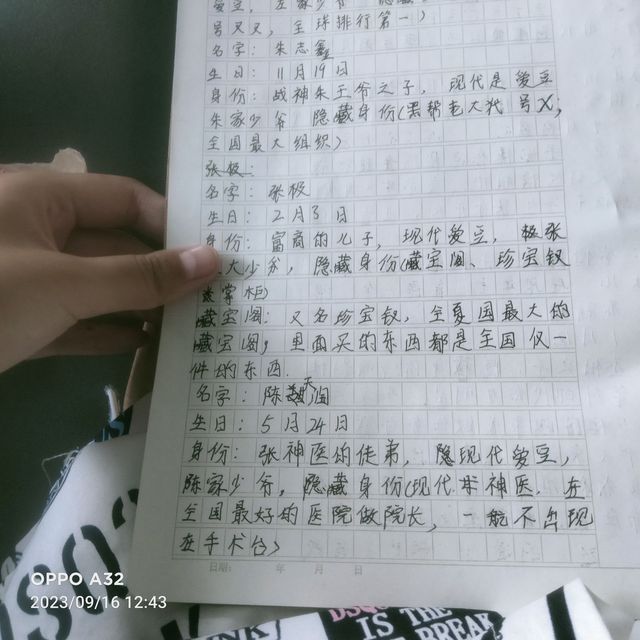 爱豆,
号叉叉, 全球排行第一)
名字: 朱志鑫
生日: 11月19日
身份: 战神朱王爷之子, 现代是爱豆
朱家少爷, 隐藏身份(黑帮老大代号X,
全国最大组织)
张极
名字: 张极
生日: 2月3日
身份: 富商的儿子, 现代爱豆, 张
大少爷, 隐藏身份(藏宝阁、珍宝钗
掌柜)
藏宝阁: 又名珍宝钗, 全夏国最大的
藏宝阁, 里面买的东西都是全国仅一
件的东西.
名字: 陈天润
生日: 5月24日
身份: 张神医的徒弟, 现代爱豆,
陈家少爷, 隐藏身份(现代 神医. 在
全国最好的医院做院长, 一般不出现
在手术台)
日期: 年 月 日
OPPO A32
2023/09/16 12:43
DSQ
IS THE
BREAK